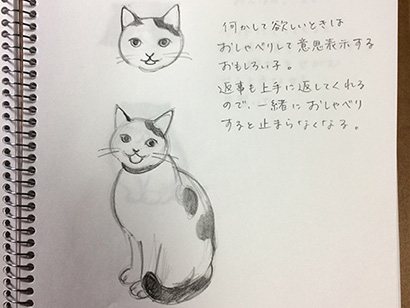 何かして欲しいときは
おしゃべりして意思表示する
おもしろい子。
返事も上手に返してくれる
ので、一緒におしゃべり
すると止まらなくなる。